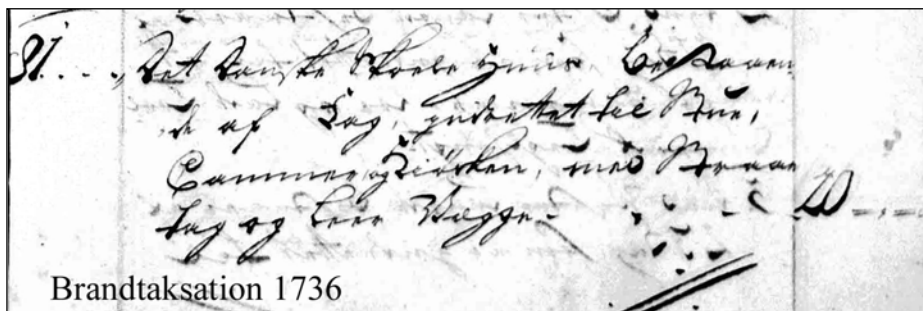 91. . . . „ Det Danske Skoele Huus, Bestaaen
de af Fag, indrettet til Stue,
Cammer, og Kiøcken, med Straae
tag og leer Vægge — 20 — „ —
Brandtaksation 1736